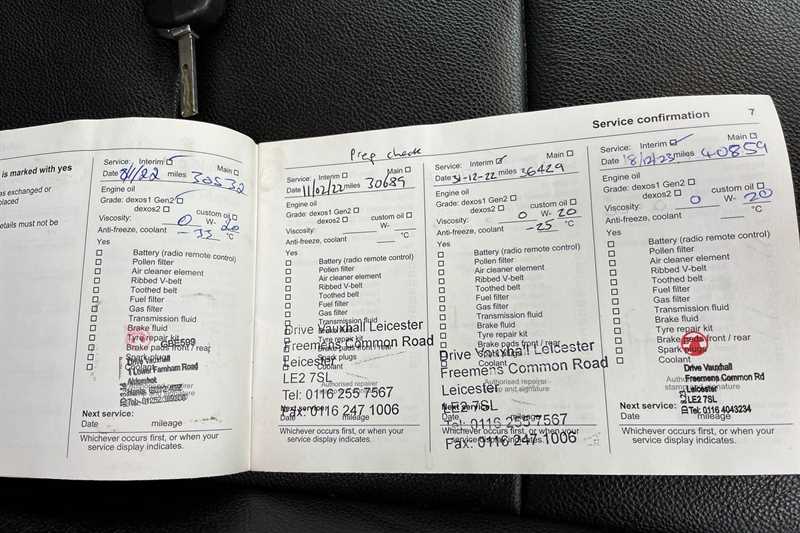 Service confirmation 7
is marked with yes
as exchanged or
placed
etails must not be
Service: Interim Main
Date 8/1/22 miles 30532
Engine oil
Grade: dexos1 Gen2
dexos2 custom oil
Viscosity: 0 W- 20
Anti-freeze, coolant -35 °C
Yes
Battery (radio remote control)
Pollen filter
Air cleaner element
Ribbed V-belt
Toothed belt
Fuel filter
Gas filter
Transmission fluid
Brake fluid
Tyre repair kit
Brake pads front / rear
Spark plugs
Coolant
GBE599
Drive Vauxhall
1 Lower Farnham Road
Aldershot
Next service:
Date mileage
Whichever occurs first, or when your
service display indicates.
Prep check
Service: Interim Main
Date 11/02/22 miles 30689
Engine oil
Grade: dexos1 Gen2
dexos2 custom oil
Viscosity: W-
Anti-freeze, coolant °C
Yes
Battery (radio remote control)
Pollen filter
Air cleaner element
Ribbed V-belt
Toothed belt
Fuel filter
Gas filter
Transmission fluid
Brake fluid
Tyre repair kit
Brake pads front / rear
Spark plugs
Coolant
Drive Vauxhall Leicester
Freemens Common Road
Leicester
LE2 7SL
Tel: 0116 255 7567
Fax: 0116 247 1006
Authorised repairer
Next service:
Date mileage
Whichever occurs first, or when your
service display indicates.
Service: Interim Main
Date 31-12-22 miles 36429
Engine oil
Grade: dexos1 Gen2
dexos2 custom oil
Viscosity: 0 W- 20
Anti-freeze, coolant -25 °C
Yes
Battery (radio remote control)
Pollen filter
Air cleaner element
Ribbed V-belt
Toothed belt
Fuel filter
Gas filter
Transmission fluid
Brake fluid
Tyre repair kit
Brake pads front / rear
Spark plugs
Coolant
Drive Vauxhall Leicester
Freemens Common Road
Leicester
LE2 7SL
Tel: 0116 255 7567
Fax: 0116 247 1006
Authorised repairer
Next service:
Date mileage
Whichever occurs first, or when your
service display indicates.
Service: Interim Main
Date 18/12/23 miles 40859
Engine oil
Grade: dexos1 Gen2
dexos2 custom oil
Viscosity: 0 W- 20
Anti-freeze, coolant °C
Yes
Battery (radio remote control)
Pollen filter
Air cleaner element
Ribbed V-belt
Toothed belt
Fuel filter
Gas filter
Transmission fluid
Brake fluid
Tyre repair kit
Brake pads front / rear
Spark plugs
Coolant
Drive Vauxhall
Freemens Common Rd
Leicester
LE2 7SL
Tel: 0116 4043234
Next service:
Date mileage
Whichever occurs first, or when your
service display indicates.